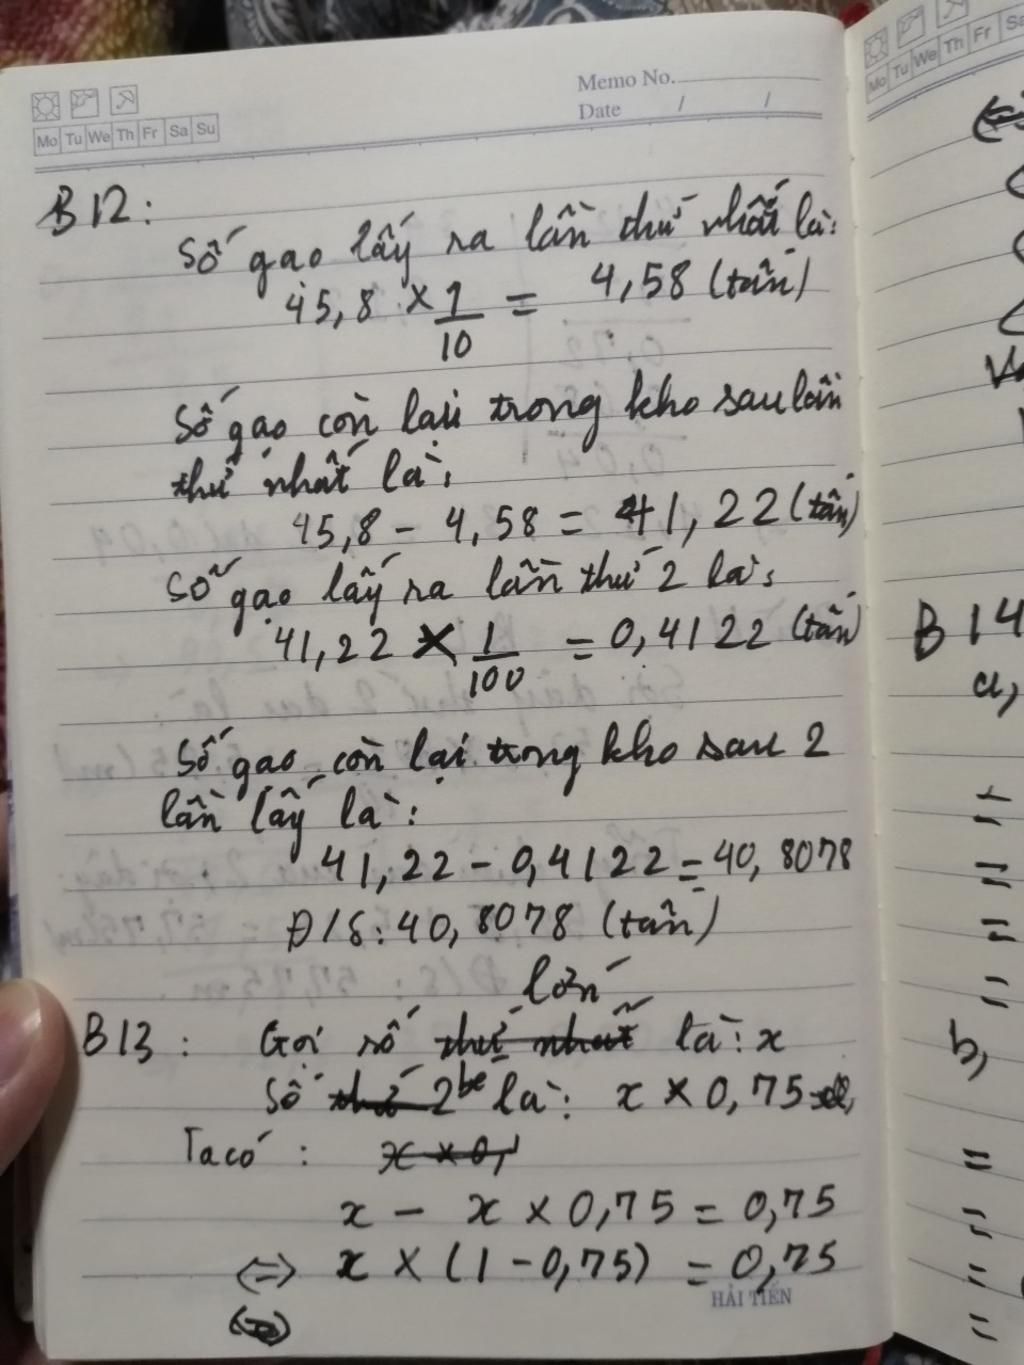 Memo No.
Date / /
Mo Tu We Th Fr Sa Su
B12:
Số gạo lấy ra lần thứ nhất là:
45,8 × 1/10 = 4,58 (tấn)
Số gạo còn lại trong kho sau lần
thứ nhất là:
45,8 - 4,58 = 41,22 (tấn)
Số gạo lấy ra lần thứ 2 là:
41,22 × 1/100 = 0,4122 (tấn)
Số gạo còn lại trong kho sau 2
lần lấy là:
41,22 - 0,4122 = 40,8078
Đ/S: 40,8078 (tấn)
lớn
B13: Gọi số thứ nhất là: x
Số thứ 2 bé là: x × 0,75
Ta có: x × 0,
x - x × 0,75 = 0,75
<=> x × (1 - 0,75) = 0,75
HẢI TIẾN
Mo Tu We Th Fr Sa
B14
a,
=
=
=
=
b,
=
=
=
=